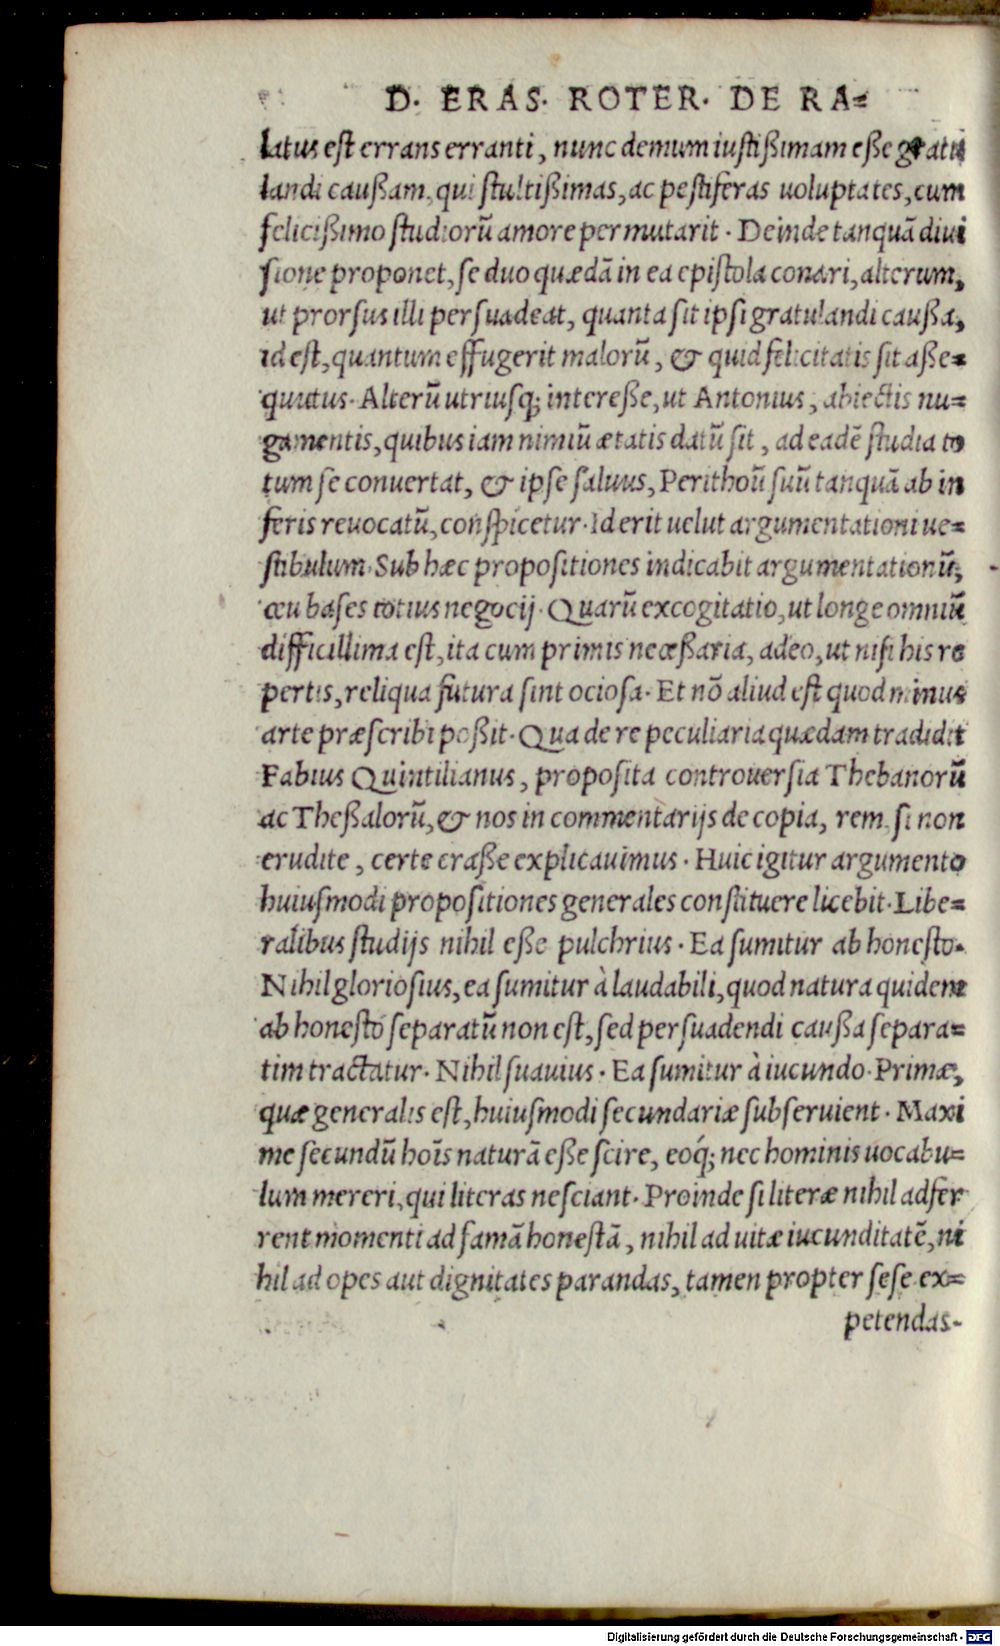 D. ERAS. ROTER. DE RA=
latus est errans erranti, nunc demum iustißimam eße gratu
landi caußam, qui stultißimas, ac pestiferas uoluptates, cum
felicißimo studiorū amore permutarit. Deinde tanquā diui
sione proponet, se duo quædā in ea epistola conari, alterum,
ut prorsus illi persuadeat, quanta sit ipsi gratulandi caußa,
id est, quantum effugerit malorū, & quid felicitatis sit aße=
quutus. Alterū utriusq; intereße, ut Antonius, abiectis nu=
gamentis, quibus iam nimiū ætatis datū sit, ad eadē studia to
tum se conuertat, & ipse saluus, Perithoū suū tanquā ab in
feris reuocatū, conspicetur. Id erit uelut argumentationi ue=
stibulum. Sub hæc propositiones indicabit argumentationū,
ceu bases totius negocij. Quarū excogitatio, ut longe omniū
difficillima est, ita cum primis neceßaria, adeo, ut nisi his re
pertis, reliqua futura sint ociosa. Et nō aliud est quod minus
arte præscribi poßit. Qua de re peculiaria quædam tradidit
Fabius Quintilianus, proposita controuersia Thebanorū
ac Theßalorū, & nos in commentarijs de copia, rem, si non
erudite, certe craße explicauimus. Huic igitur argumento
huiusmodi propositiones generales constituere licebit. Libe=
ralibus studijs nihil eße pulchrius. Ea sumitur ab honesto.
Nihil gloriosius, ea sumitur à laudabili, quod natura quidem
ab honesto separatū non est, sed persuadendi caußa separa=
tim tractatur. Nihil suauius. Ea sumitur à iucundo. Primæ,
quæ generalis est, huiusmodi secundariæ subseruient. Maxi
me secundū hoīs naturā eße scire, eoq́; nec hominis uocabu=
lum mereri, qui literas nesciant. Proinde si literæ nihil adfer
rent momenti ad famā honestā, nihil ad uitæ iucunditatē, ni
hil ad opes aut dignitates parandas, tamen propter sese ex=
petendas.
Digitalisierung gefördert durch die Deutsche Forschungsgemeinschaft - DFG